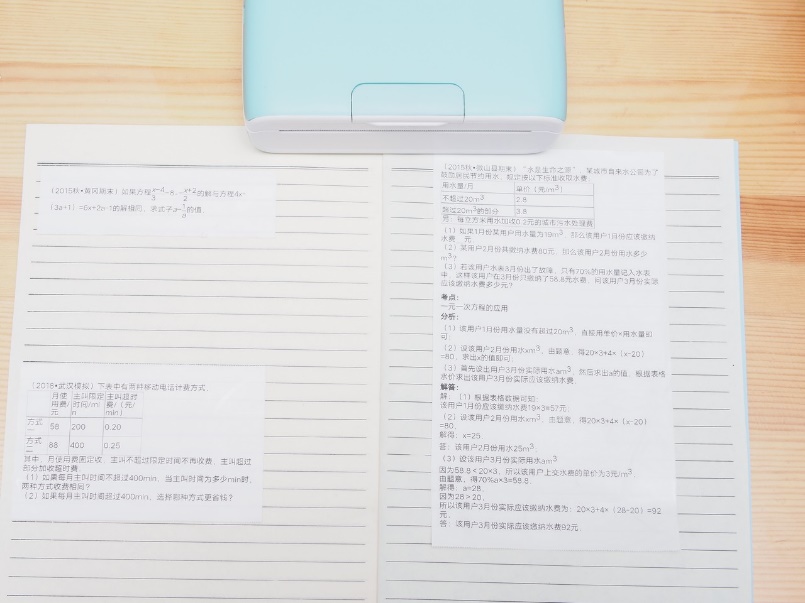 (2015秋•黄冈期末)如果方程
的解与方程4x-
(3a+1)=6x+2a-1的解相同,求式子a-
的值.
(2015•武汉模拟)下表中有两种移动电话计费方式.
月使用费/元 主叫限定时间/min 主叫超时费/(元/min)
方式一 58 200 0.20
方式二 88 400 0.25
其中,月使用费固定收,主叫不超过限定时间不再收费,主叫超过
部分加收超时费.
(1)如果每月主叫时间不超过400min,当主叫时间为多少min时,
两种方式收费相同?
(2)如果每月主叫时间超过400min,选择哪种方式更省钱?
"水是生命之源",某城市自来水公司为了
鼓励居民节约用水,规定按以下标准收取水费:
用水量/月 单价(元/m³)
不超过20m³ 2.8
超过20m³的部分 3.8
另:每立方米用水加收0.2元的城市污水处理费
(1)如果1月份某用户用水量为19m³,那么该用户1月份应该缴纳
水费 元
(2)某用户2月份共缴纳水费80元,那么该用户2月份用水多少
m³?
(3)若该用户水表3月份出了故障,只有70%的用水量记入水表
中,这样该用户在3月份只缴纳了58.8元水费,问该用户3月份实际
应该缴纳水费多少元?
考点:
一元一次方程的应用
分析:
(1)该用户1月份用水量没有超过20m³,直接用单价×用水量即
可;
(2)设该用户2月份用水xm³,由题意,得20×3+4×(x-20)
=80,求出x的值即可;
(3)首先设出用户3月份实际用水am³,然后求出a的值,根据表格
水价求出该用户3月份实际应该缴纳水费
解答:
解:(1)根据表格数据可知:
该用户1月份应该缴纳水费19×3=57元;
(2)设该用户2月份用水xm³,由题意,得20×3+4×(x-20)
=80,
解得:x=25
答:该用户2月份用水25m³;
(3)设该用户3月份实际用水am³
因为58.8<20×3,所以该用户上交水费的单价为3元/m³.
由题意,得70%a×3=58.8.
解得:a=28,
因为28>20,
所以该用户3月份实际应该缴纳水费为:20×3+4×(28-20)=92
元
答:该用户3月份实际应该缴纳水费92元.